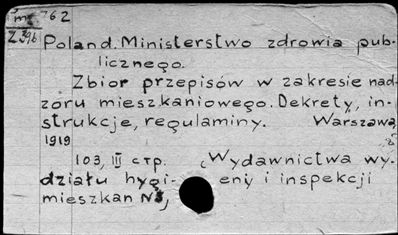 762
Z396
Poland. Ministerstwo zdrowia pub-
licznego.
Zbior przepisów w zakresie nad-
zoru mieszkaniowego. Dekrety, in-
strukcje, regulaminy. Warszawa,
1919
103, III стр. (Wydawnictwa wy-
działu hygi- eny i inspekcji
mieszkan №